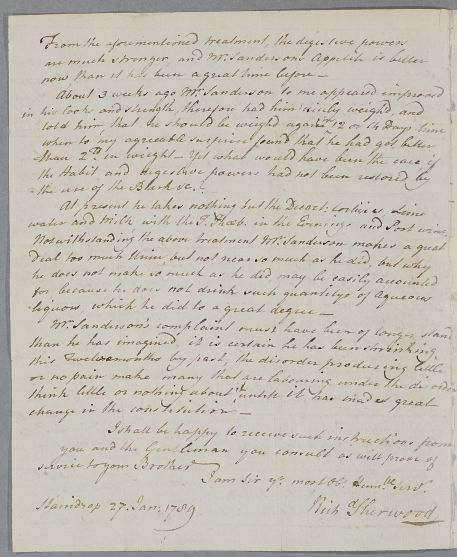 From the aforementioned treatment, the digestive powers
are much stronger, and Mr. Sanderson's Appetite is better
now than it has been a great time before—
About 3 weeks ago Mr. Sanderson to me appeared improved
in his looks and strength, therefore had him nicely weighed, and
told him, that he should be weighed again in 12 or 14 Days time
when to my agreeable surprise found that he had got better
than 2 lb in weight— Yet what would have been the case if
the Habit and digestive powers had not been restored by
the use of the Bark &c.?
At present he takes nothing but the Decoct: Corticis, Lime
water and Milk, with the T. Thæb. in the Evenings and Port wine,
Notwithstanding the above treatment Mr. Sanderson makes a great
Deal too much Urine, but not near so much as he did, but why
he does not make so much as he did may be easily accounted
for because he does not drink such quantitys of aqueous
liquors, which he did to a great degree—
Mr. Sanderson's complaint must have been of longer stand
than he has imagined, it is certain he has been shrinking
this Twelvemonths by past, the disorder producing little
or no pain make many that are labouring under the disorder
think little or nothing about it untill it has made great
change in the constitution—
I shall be happy to receive such instructions from
you and the Gentleman you consult as will prove of
service to your Brother
I am Sir yr. most Obt. humble Servt.
Richd Sherwood
Staindrop 27 Jan: 1789